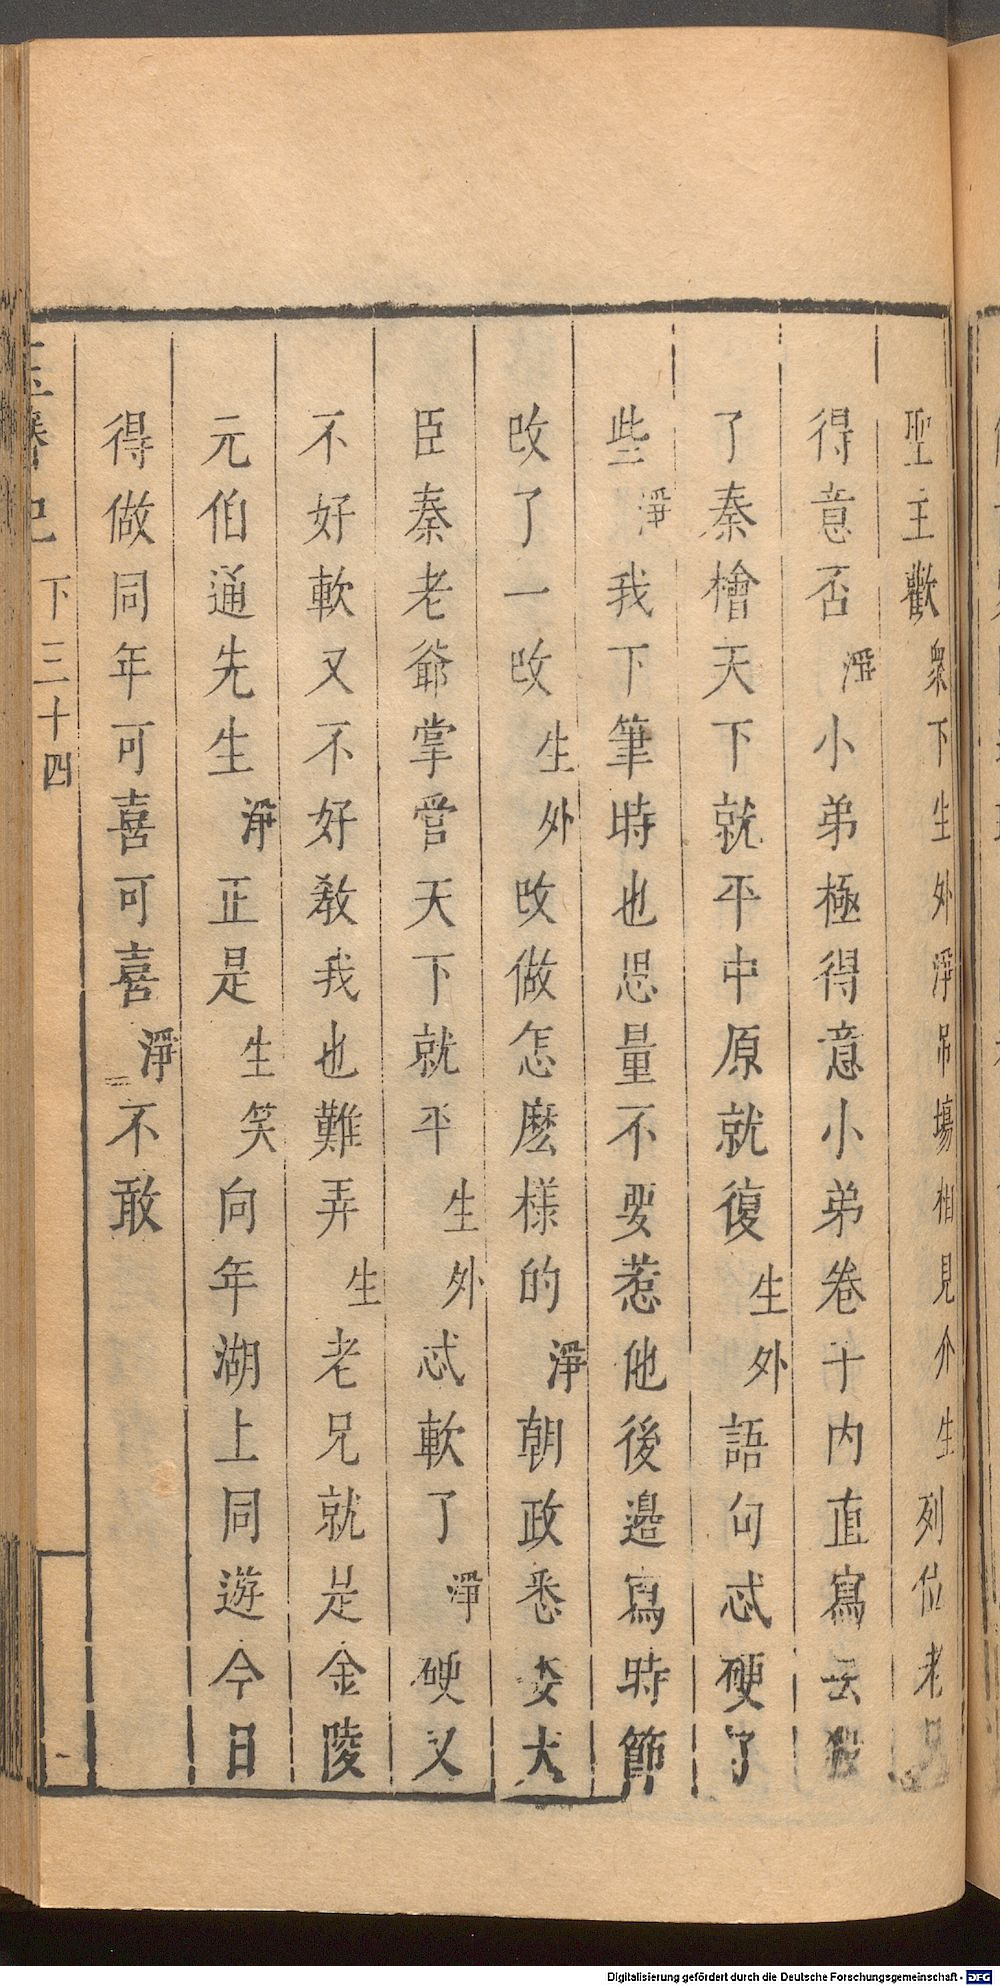 聖主歡衆下生外淨吊塲相見介生列位老兄
得意否淨小弟極得意小弟卷子内直寫云殺
了秦檜天下就平中原就復生外語句忒硬了
些淨我下筆時也思量不要惹他後邉寫時節
攺了一攺生外攺做怎麽樣的淨朝政悉委大
臣秦老爺掌管天下就平生外忒軟了淨硬又
不好軟又不好敎我也難弄生老兄就是金陵
元伯通先生淨正是生笑向年湖上同遊今日
得做同年可喜可喜淨不敢
下三十四
Digitalisierung gefördert durch die Deutsche Forschungsgemeinschaft - DFG